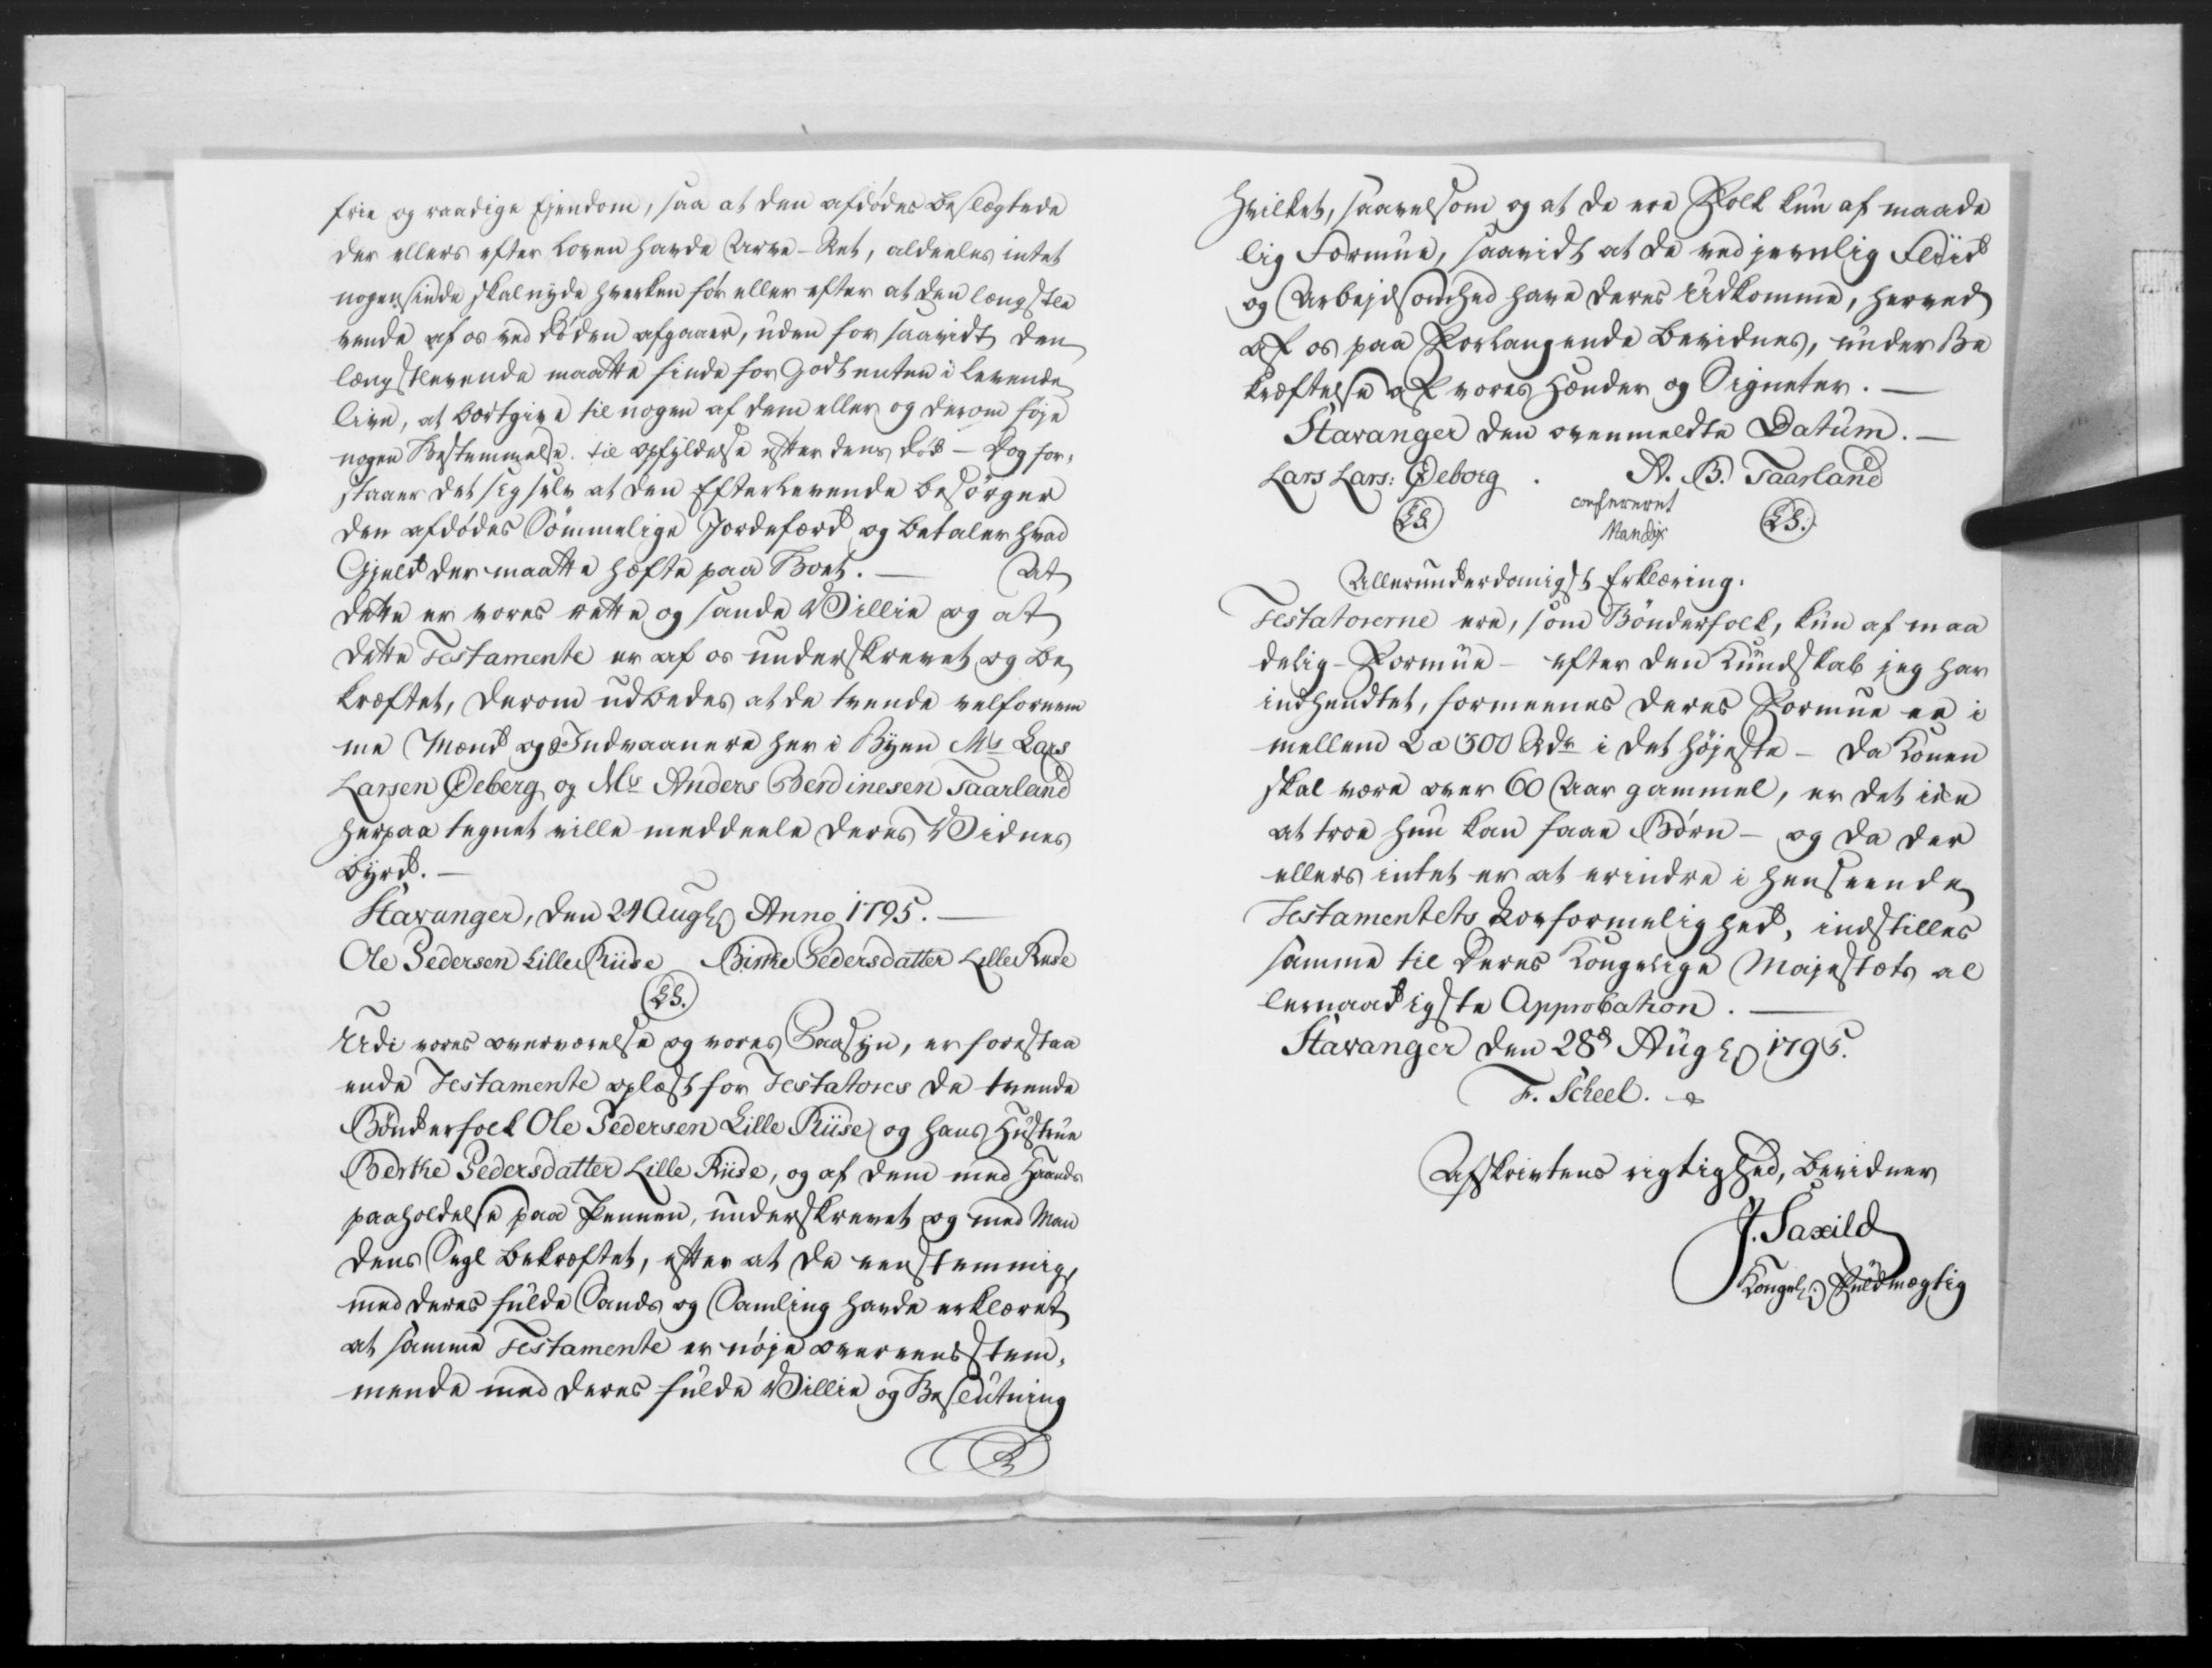 frie og raadige Ejendom, saa at den afdødes Beslægtede
der ellers efter Loven havde Arve-Ret, aldeeles intet
nogensinde skal nyde hverken før eller efter at den længstle
vende af os ved Døden afgaaer, uden for saavidt den
længstlevende maatte finde for Godt enten i levende
Live, at bortgive til nogen af dem eller og derom føje
nogen Bestemmelse til opfyldelse efter dens Død - Dog for-
staaer det sig selv at den Efterlevende besørger
den afdødes Sømmelige Jordefærd og betaler hvad
Gjeld der maatte hæfte paa Boet. — At
dette er vores rette og sande Villie og at
dette Testamente er af os underskrevet og be
kræftet, derom udbedes at de tvende velfornem
me Mænd og Indvaanere her i Byen Mr Lars
Larsen Øeberg og Mr Anders Berdinesen Taarland
herpaa tegnet ville meddeele deres Vidnes
byrd. —
Stavanger, den 24 Aug: Anno 1795. —
Ole Pedersen Lille Riise Birthe Pedersdatter Lille Riise
(LS.)
Udi vores overværelse og vores Paasyn, er forestaa
ende Testamente oplæst for Testatores de tvende
Bønderfolk Ole Pedersen Lille Riise og hans Hustrue
Berthe Pedersdatter Lille Riise, og af dem med Haands
paaholdelse paa Pennen, underskrevet og med Man
dens Segl bekræftet, efter at de eenstemmig,
med deres fulde Sands og Samling havde erklæret
at samme Testamente er nøje overeensstem-
mende med deres fulde Villie og Beslutning
hvilket, saavelsom og at de ere Folk kun af maade
lig Formue, saavidt at de ved jevnlig Fliid
og Arbejdsomhed have deres Udkomme, herved
af os paa Forlangende bevidnes, under Be
kræftelse af vores Hænder og Signeter. —
Stavanger den ovenmeldte Datum. —
Lars Lars: Øeborg . A. B. Taarland
confereret
(LS.) Mandix (LS.)
Allerunderdanigst Erklæring.
Testatorerne ere, som Bønderfolk, kun af maa
delig - Formue - efter den Kundskab jeg har
indhendtet, formeenes deres Formue er i
mellem 2 a 300 Rdr i det højeste - da Konen
skal være over 60 Aar gammel, er det ikke
at troe hun kan faae Børn - og da der
ellers intet er at erindre i henseende
Testamentets Forformelighed, indstilles
samme til Deres Kongelige Majestæts al
lernaadigste Approbation. —
Stavanger den 28de Aug: 1795.
F. Scheel.
Afskrivtens rigtighed, bevidner
J. Saxild
Kongel: Fuldmægtig